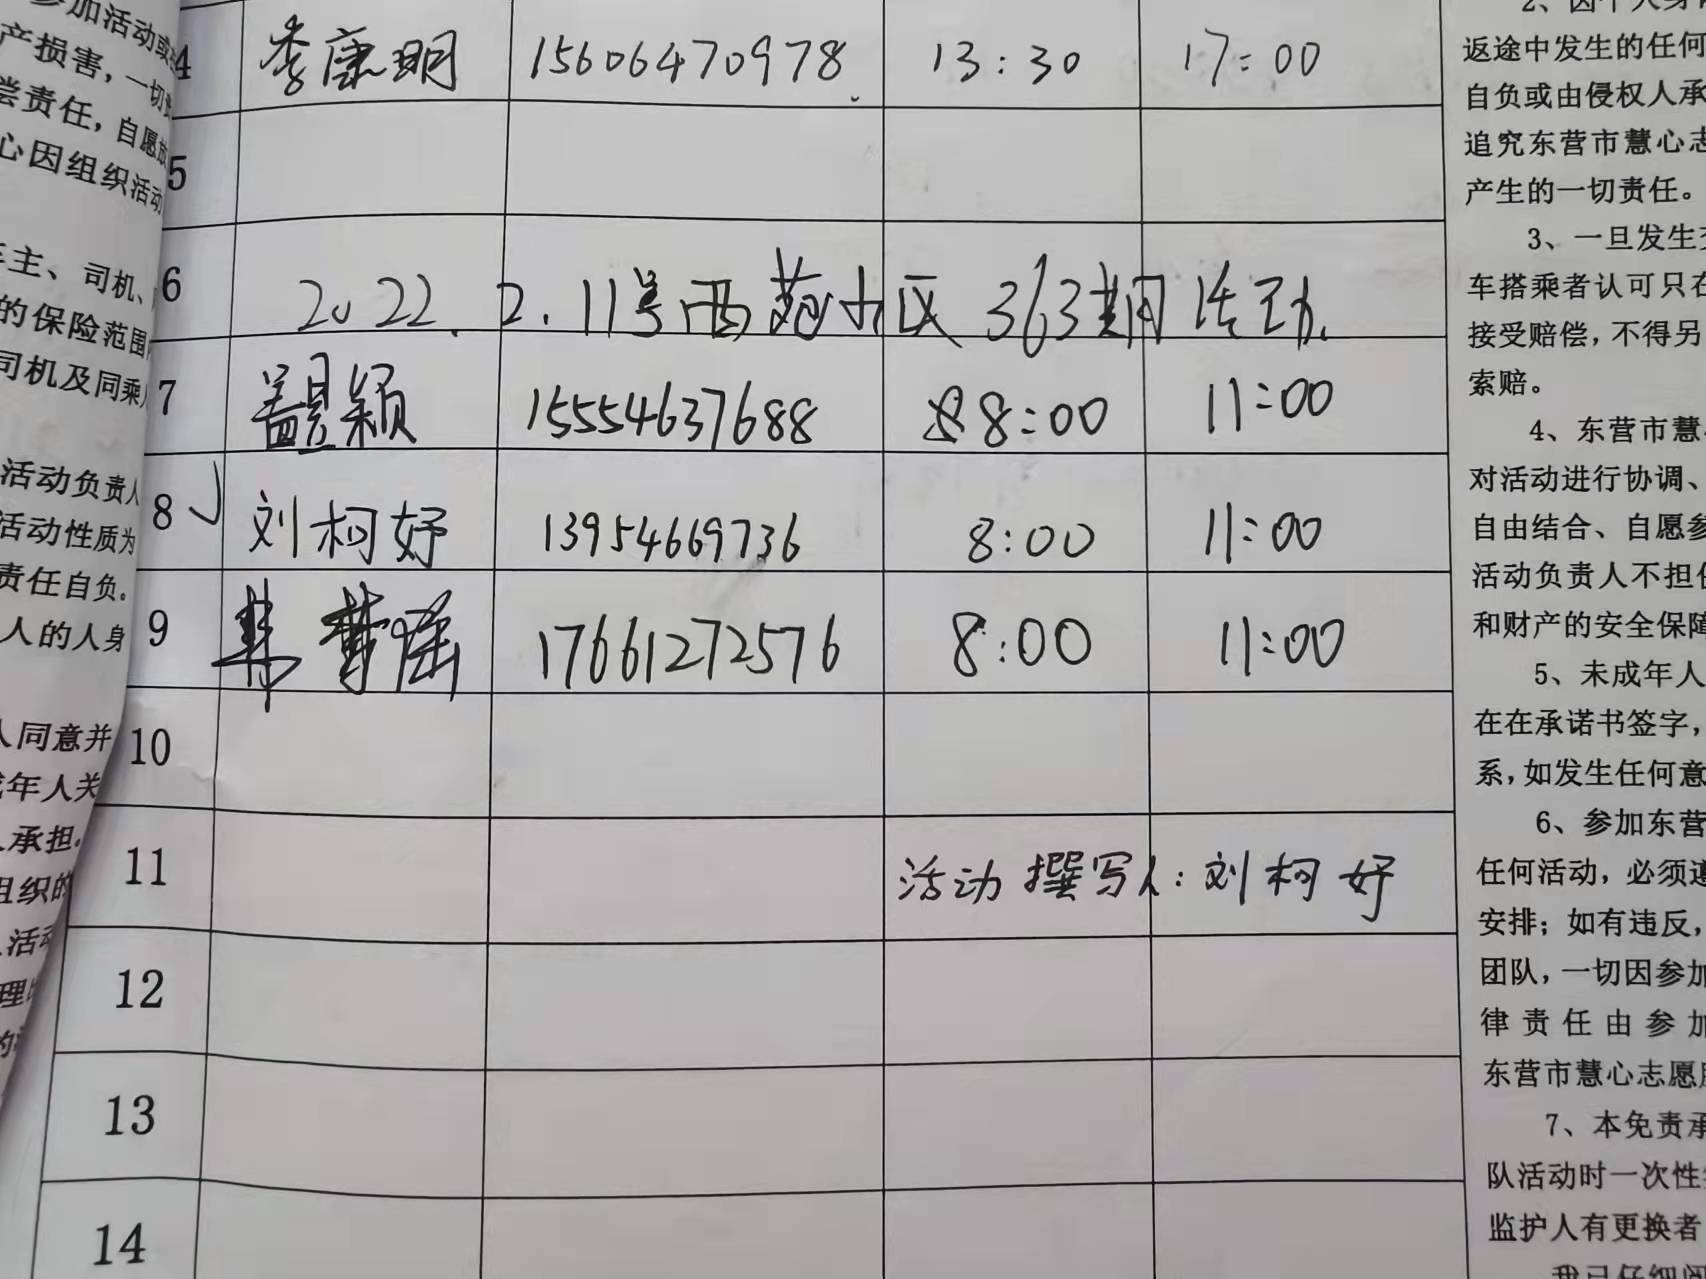 参加活动或
产损害，一切责
偿责任，自愿放
心因组织活动
车主、司机、
的保险范围
司机及同乘人
活动负责人
活动性质为
责任自负。
人的人身
人同意并
成年人关
承担。
组织的
活动
理
4 李康明 15606470978 13:30 17:00
5
6 2022.2.11号西苑小区363期活动.
7 盖昱颖 15554637688 8:00 11:00
8 刘柯妤 13954669736 8:00 11:00
9 17661272576 8:00 11:00
10
11 活动撰写人:刘柯妤
12
13
14
2、因个人身
返途中发生的任何
自负或由侵权人承
追究东营市慧心志
产生的一切责任。
3、一旦发生
车搭乘者认可只在
接受赔偿，不得另
索赔。
4、东营市慧
对活动进行协调、
自由结合、自愿参
活动负责人不担
和财产的安全保障
5、未成年人
在在承诺书签字，
系，如发生任何意
6、参加东营
任何活动，必须遵
安排；如有违反，
团队，一切因参加
律责任由参加
东营市慧心志愿
7、本免责承
队活动时一次性
监护人有更换者
我已仔细阅